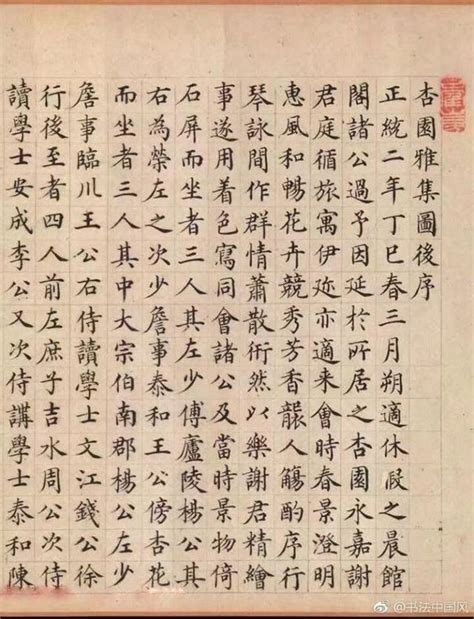 杏園雅集圖後序
正統二年丁巳春三月朔適休假之晨館
閣諸公過予因延於所居之杏園永嘉謝
君庭循旅寓伊迩亦適来會時春景澄明
惠風和暢花卉競秀芳香襲人觴酌序行
琴詠間作群情蕭散衎然以樂謝君精繪
事遂用着色寫同會諸公及當時景物倚
石屏而坐者三人其左少傅廬陵楊公其
右為榮左之次少詹事泰和王公傍杏花
而坐者三人其中大宗伯南郡楊公左少
詹事臨川王公右侍讀學士文江錢公徐
行後至者四人前左庶子吉水周公次侍
讀學士安成李公又次侍講學士泰和陳
@书法中国风